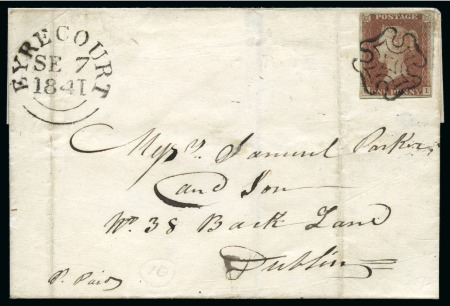 EYRECOURT
SE 7
1841
POSTAGE
ONE PENNY
L
Messrs. Samuel Parker
and Son
No. 38 Back Lane
Dublin
P. Paid